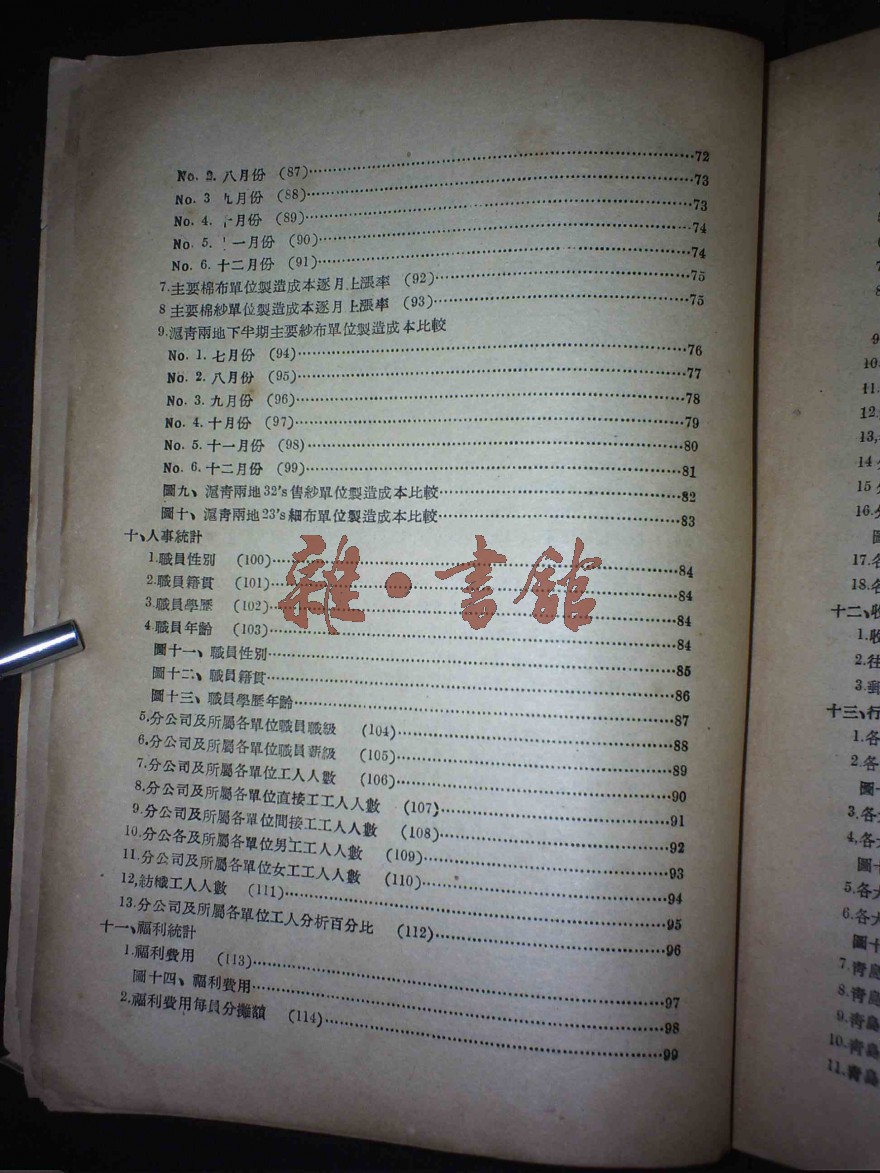 No. 2. 八月份 (87)……72
No. 3 九月份 (88)……73
No. 4. 十月份 (89)……73
No. 5. 十一月份 (90)……74
No. 6. 十二月份 (91)……74
7.主要棉布單位製造成本逐月上漲率 (92)……75
8 主要棉紗單位製造成本逐月上漲率 (93)……75
9.滬青兩地下半期主要紗布單位製造成本比較
No. 1. 七月份 (94)……76
No. 2. 八月份 (95)……77
No. 3. 九月份 (96)……78
No. 4. 十月份 (97)……79
No. 5. 十一月份 (98)……80
No. 6. 十二月份 (99)……81
圖九、滬青兩地32's售紗單位製造成本比較……82
圖十、滬青兩地23's細布單位製造成本比較……83
十、人事統計
1.職員性別 (100)……84
2.職員籍貫 (101)……84
3.職員學歷 (102)……84
4.職員年齡 (103)……84
圖十一、職員性別……85
圖十二、職員籍貫……86
圖十三、職員學歷年齡……87
5.分公司及所屬各單位職員職級 (104)……88
6.分公司及所屬各單位職員薪級 (105)……89
7.分公司及所屬各單位工人人數 (106)……90
8.分公司及所屬各單位直接工工人人數 (107)……91
9.分公司及所屬各單位間接工工人人數 (108)……92
10.分公各及所屬各單位男工工人人數 (109)……93
11.分公司及所屬各單位女工工人人數 (110)……94
12,紡織工人人數 (111)……95
13.分公司及所屬各單位工人分析百分比 (112)……96
十一、福利統計
1.福利費用 (113)……97
圖十四、福利費用……98
2.福利費用每員分攤額 (114)……99
雜·書館
9
10.
11.
12.
13,
14
15
16.
圖
17.各
18.名
十二、收
1.收
2.往
3.郵
十三、行
1.各
2.各
圖十
3.各大
4,各大
圖十
5.各大
6.各大
圖十
7.青島
8.青島
9.青島
10.青島
11.青島